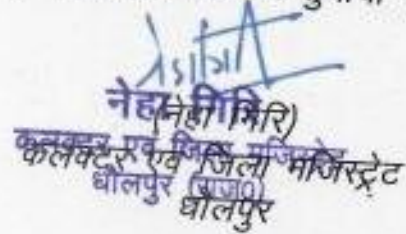 नेहा गिरि
(नेहा गिरि)
कलक्टर एवं जिला मजिस्ट्रेट
कलक्टर एवं जिला मजिस्ट्रेट
धौलपुर (राज0)
धौलपुर